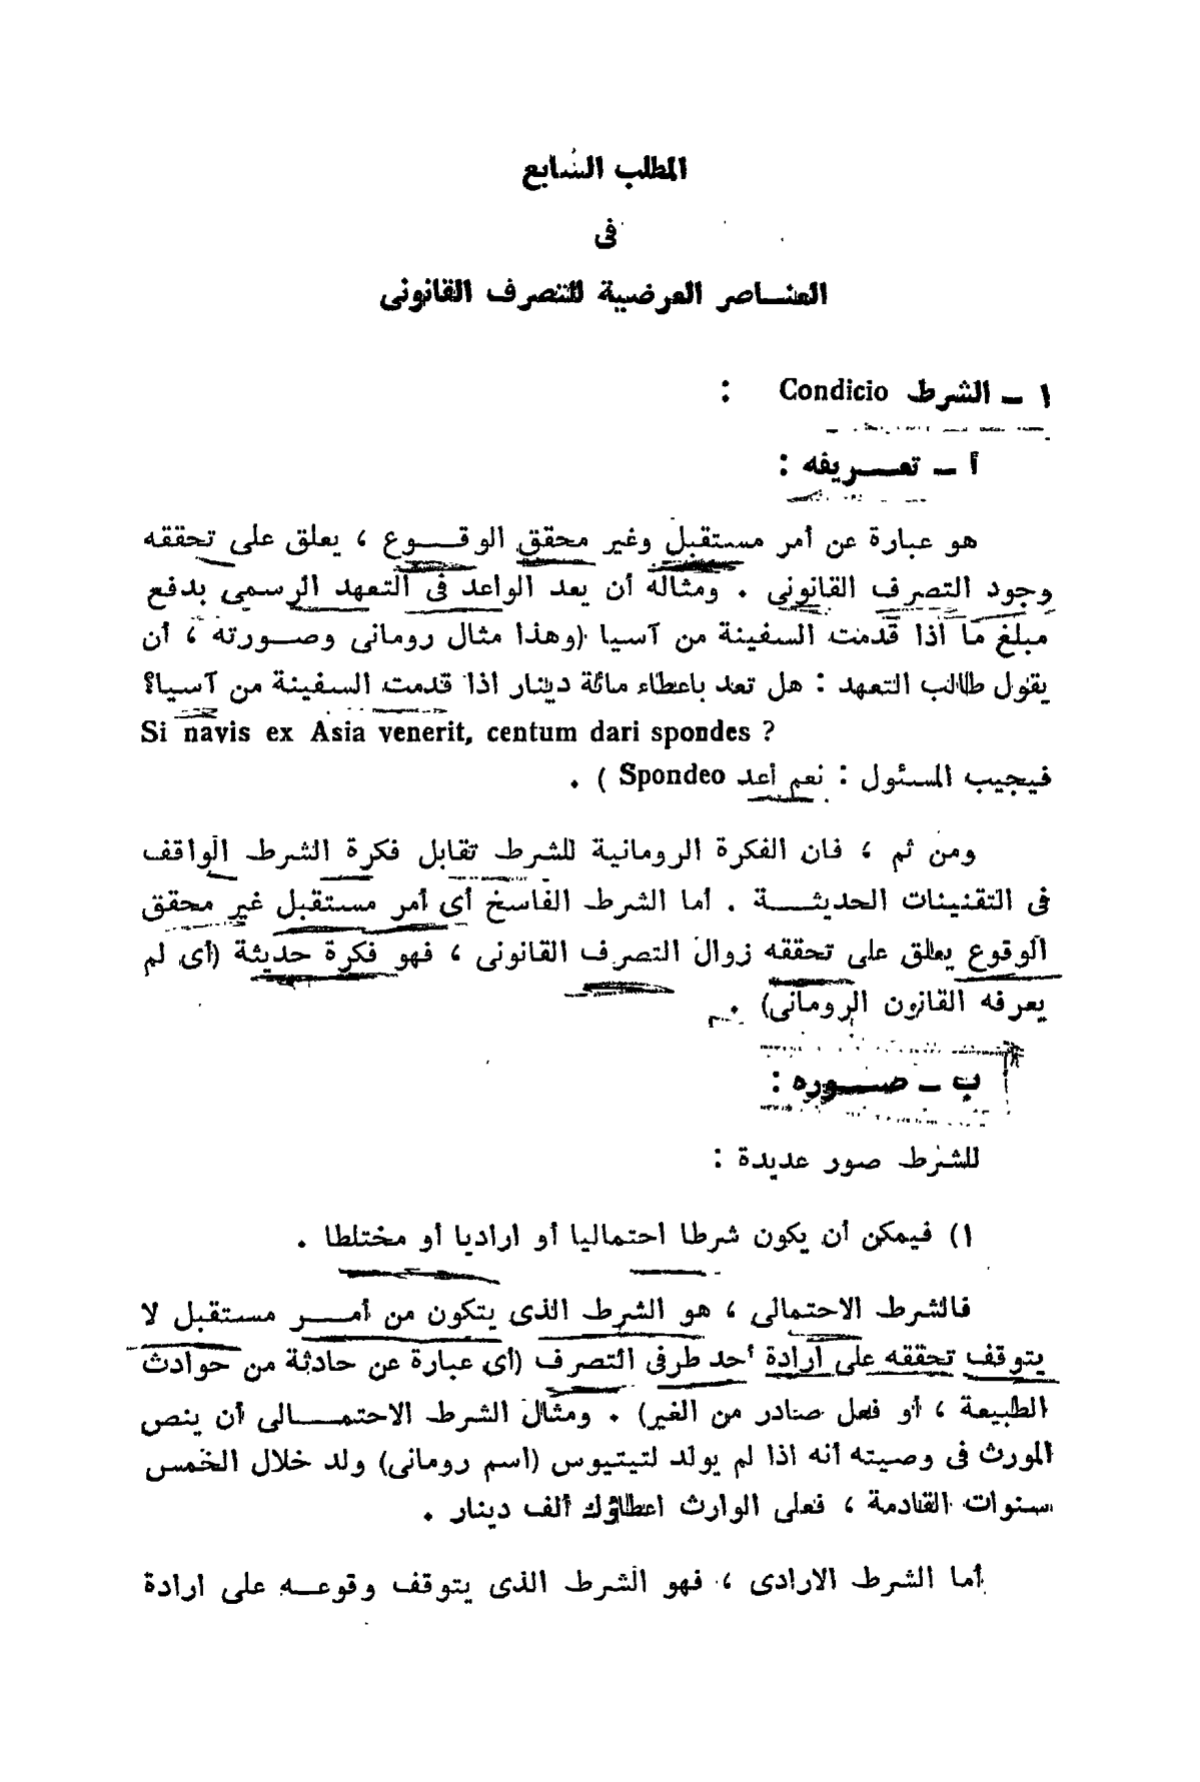 المطلب السابع
فى
العناصر العرضية للتصرف القانونى
١ ـ الشرط Condicio :
أ ـ تعريفه :
هو عبارة عن أمر مستقبل وغير محقق الوقوع ، يعلق على تحققه
وجود التصرف القانونى . ومثاله أن يعد الواعد فى التعهد الرسمى بدفع
مبلغ ما اذا قدمت السفينة من آسيا (وهذا مثال رومانى وصورته ، أن
يقول طالب التعهد : هل تعد باعطاء مائة دينار اذا قدمت السفينة من آسيا؟
Si navis ex Asia venerit, centum dari spondes ?
فيجيب المسئول : نعم أعد Spondeo ) .
ومن ثم ، فان الفكرة الرومانية للشرط تقابل فكرة الشرط الواقف
فى التقنينات الحديثة . أما الشرط الفاسخ أى أمر مستقبل غير محقق
الوقوع يعلق على تحققه زوال التصرف القانونى ، فهو فكرة حديثة (أى لم
يعرفه القانون الرومانى) .
ب ـ صوره :
للشرط صور عديدة :
١) فيمكن أن يكون شرطا احتماليا أو اراديا أو مختلطا .
فالشرط الاحتمالى ، هو الشرط الذى يتكون من أمر مستقبل لا
يتوقف تحققه على ارادة أحد طرفى التصرف (أى عبارة عن حادثة من حوادث
الطبيعة ، أو فعل صادر من الغير) . ومثال الشرط الاحتمالى أن ينص
المورث فى وصيته أنه اذا لم يولد لتيتيوس (اسم رومانى) ولد خلال الخمس
سنوات القادمة ، فعلى الوارث اعطاؤك ألف دينار .
أما الشرط الارادى ، فهو الشرط الذى يتوقف وقوعه على ارادة